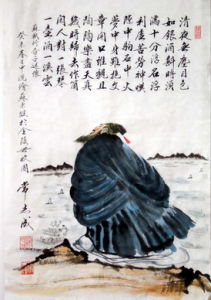 清夜無塵月色
如銀酒斟時須
滿十分浮名浮
利虛苦勞神嘆
隙中駒石中火
夢中身雖抱文
章開口誰親且
陶陶樂盡天真
幾時歸去作個
閒人對一張琴
一壺酒一溪雲
蘇軾行香子述懷